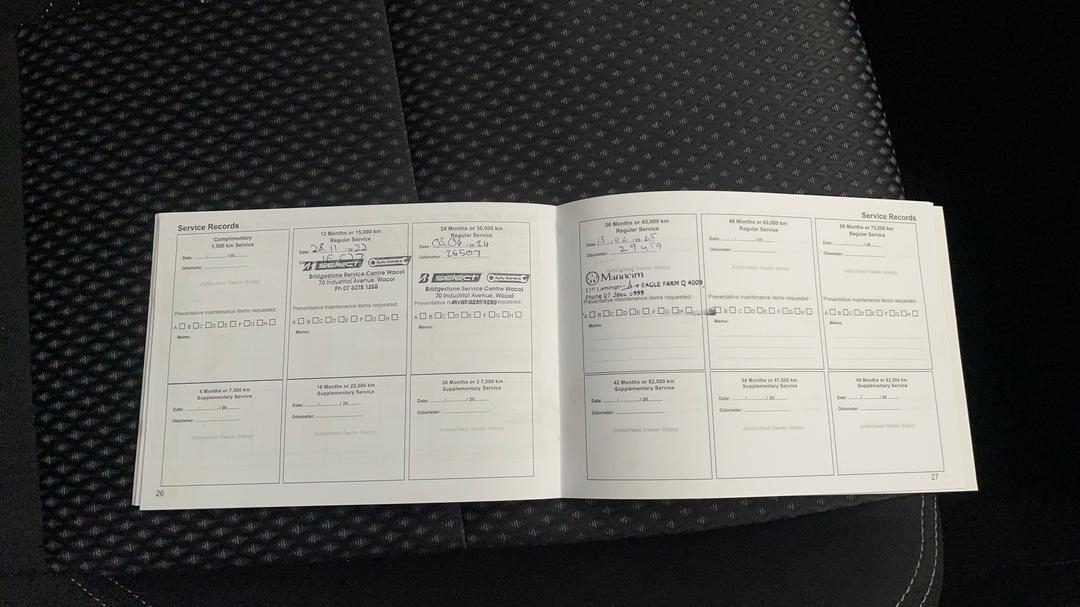 Service Records
Complimentary
1,500 km Service
Date / / 20
Odometer:
Authorised Dealer Stamp
12 Months or 15,000 km
Regular Service
Date: 28 / 11 / 20 22
SELECT Auto Service
Bridgestone Service Centre Wacol
70 Industrial Avenue, Wacol
Ph 07 3275 1255
24 Months or 30,000 km
Regular Service
Date: 03 / 04 / 20 24
Odometer: 26507
SELECT Auto Service
Bridgestone Service Centre Wacol
70 Industrial Avenue, Wacol
Preventative maintenance items requested:
A B C D E F G H
Memo:
Preventative maintenance items requested:
A B C D E F G H
Memo:
Preventative requested:
A B C D E F G H
Memo:
6 Months or 7,500 km
Supplementary Service
Date: / / 20
Odometer:
Authorised Dealer Stamp
18 Months or 22,500 km
Supplementary Service
Date: / / 20
Odometer:
Authorised Dealer Stamp
30 Months or 3 7,500 km
Supplementary Service
Date: / / 20
Odometer:
Authorised Dealer Stamp
26
Service Records
36 Months or 45,000 km
Regular Service
Date: 13 . 02 / 20 25
Odometer: 29459
Authorised Dealer Stamp
Manheim
EAGLE FARM Q 4009
Phone 07
Preventative maintenance items requested:
A B C D E F G H
Memo:
48 Months or 60,000 km
Regular Service
Date: / / 20
Odometer:
Authorised Dealer Stamp
Preventative maintenance items requested:
B C D E F G H
Memo:
60 Months or 75,000 km
Regular Service
Date: / / 20
Odometer:
Authorised Dealer Stamp
Preventative maintenance items requested:
A B C D E F G H
Memo:
42 Months or 52,500 km
Supplementary Service
Date: / / 20
Odometer:
Authorised Dealer Stamp
54 Months or 67,500 km
Supplementary Service
Date: / / 20
Odometer:
Authorised Dealer Stamp
66 Months or 82,500 km
Supplementary Service
Date: / / 20
Odometer:
Authorised Dealer Stamp
27